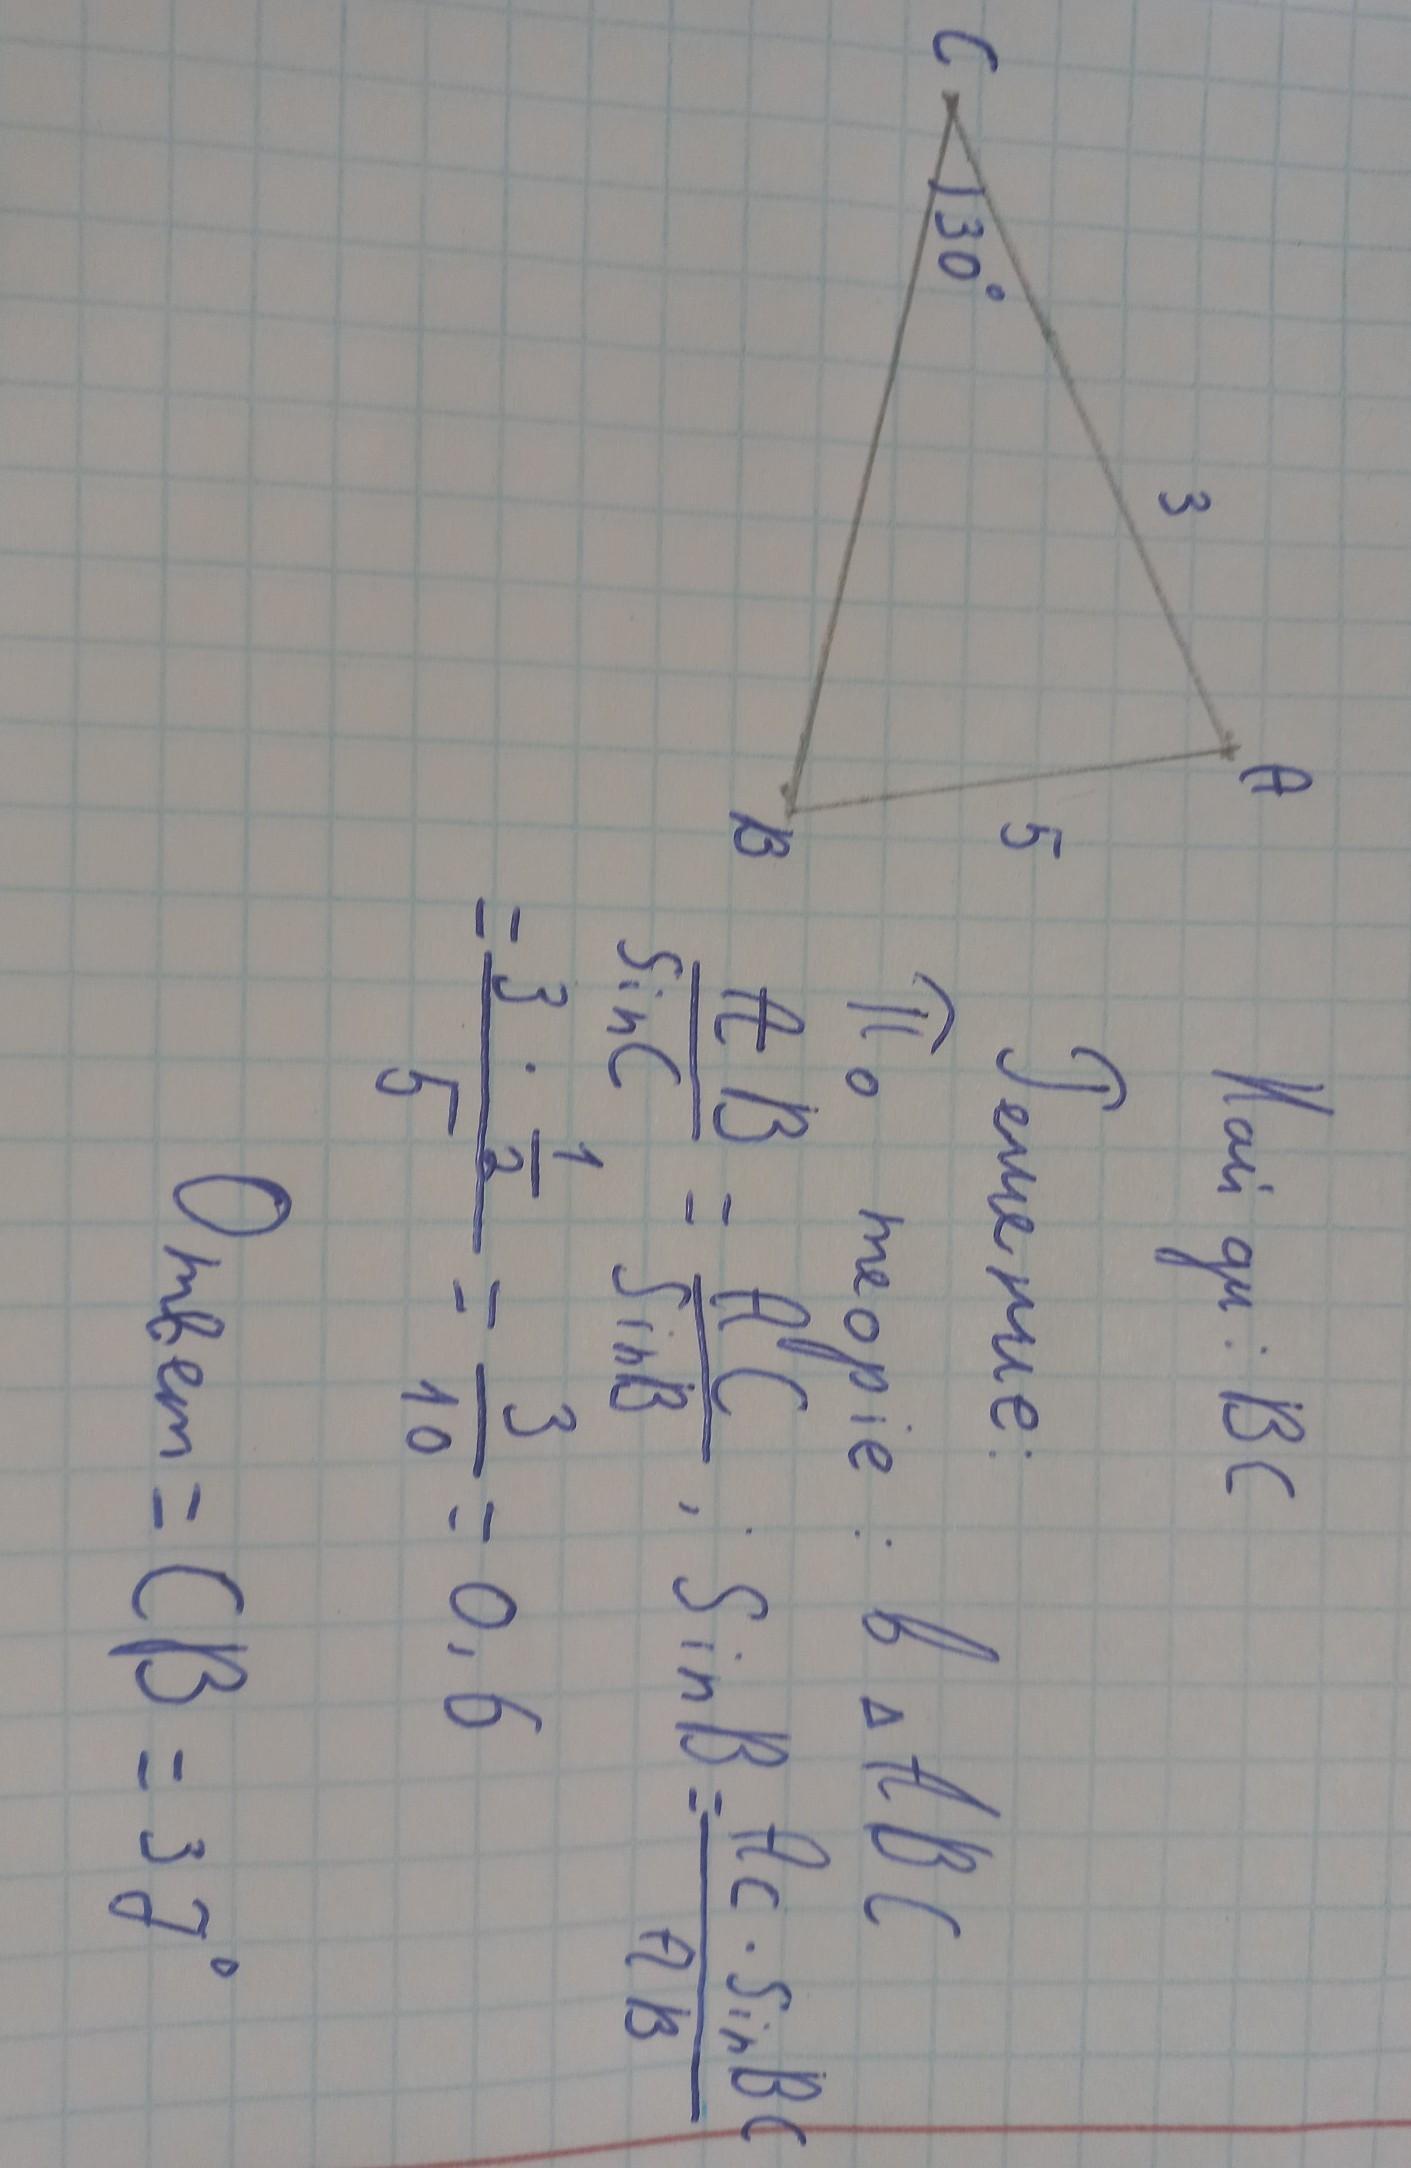 C
30°
3
A
5
B
Найди: BC
Решение:
По теорie: в △ABC
AB/SinC = AC/SinB, ; SinB = AC · SinBC/AB
= 3 · 1/2 / 5 = 3/10 = 0,6
Ответ = CB = 37°